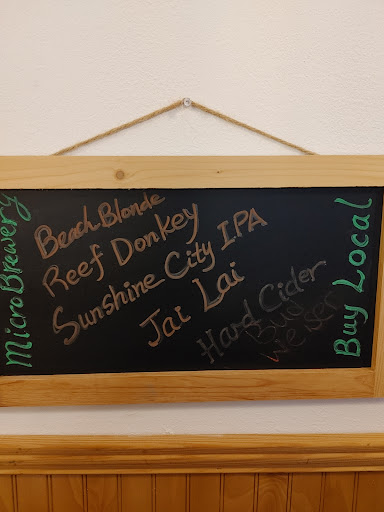 MicroBrewery
Beach Blonde
Reef Donkey
Sunshine City I.P.A
Jai Lai
Hard Cider
Bud
Weiser
Buy Local